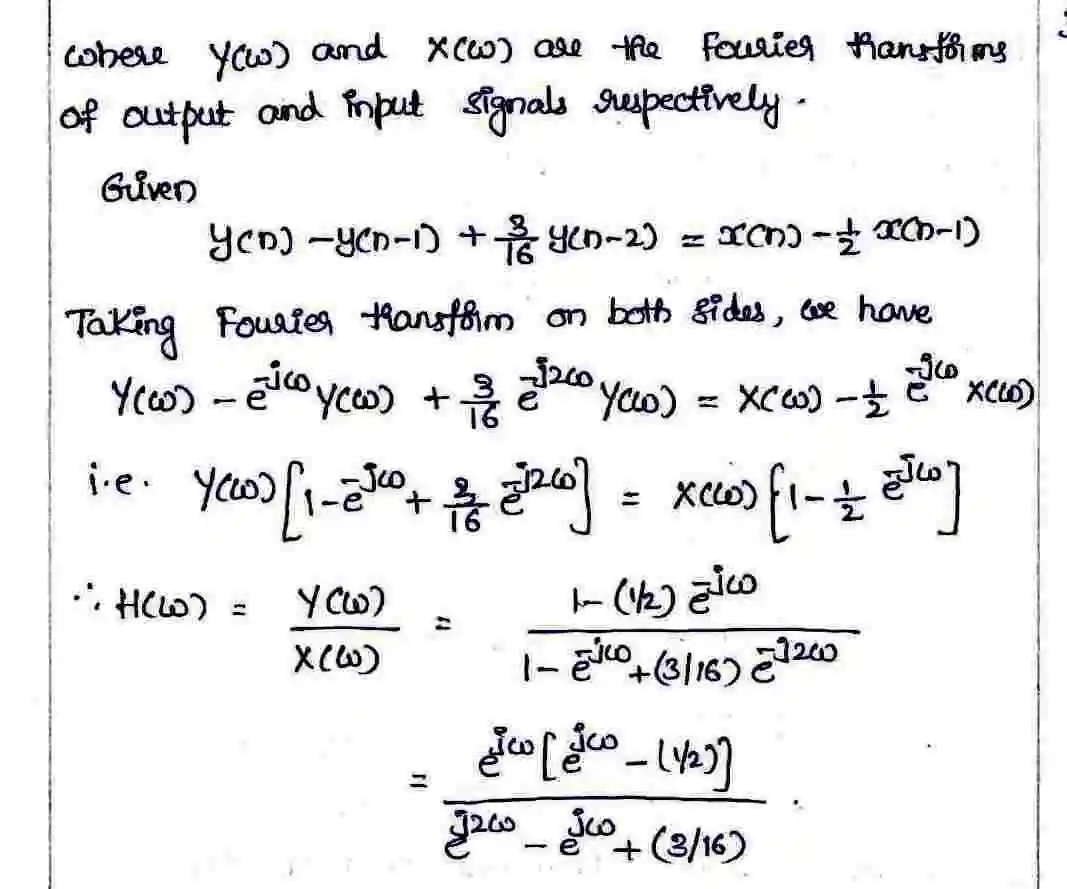 where Y(ω) and X(ω) are the Fourier transforms
of output and input signals respectively.
Given
y(n) - y(n-1) + 3/16 y(n-2) = x(n) - 1/2 x(n-1)
Taking Fourier transform on both sides, we have
Y(ω) - e^{-jω} Y(ω) + 3/16 e^{-j2ω} Y(ω) = X(ω) - 1/2 e^{-jω} X(ω)
i.e. Y(ω) [1 - e^{-jω} + 3/16 e^{-j2ω}] = X(ω) [1 - 1/2 e^{-jω}]
∴ H(ω) = Y(ω)/X(ω) = (1 - (1/2) e^{-jω})/(1 - e^{-jω} + (3/16) e^{-j2ω})
= e^{jω} [e^{jω} - (1/2)]/(e^{j2ω} - e^{jω} + (3/16)).